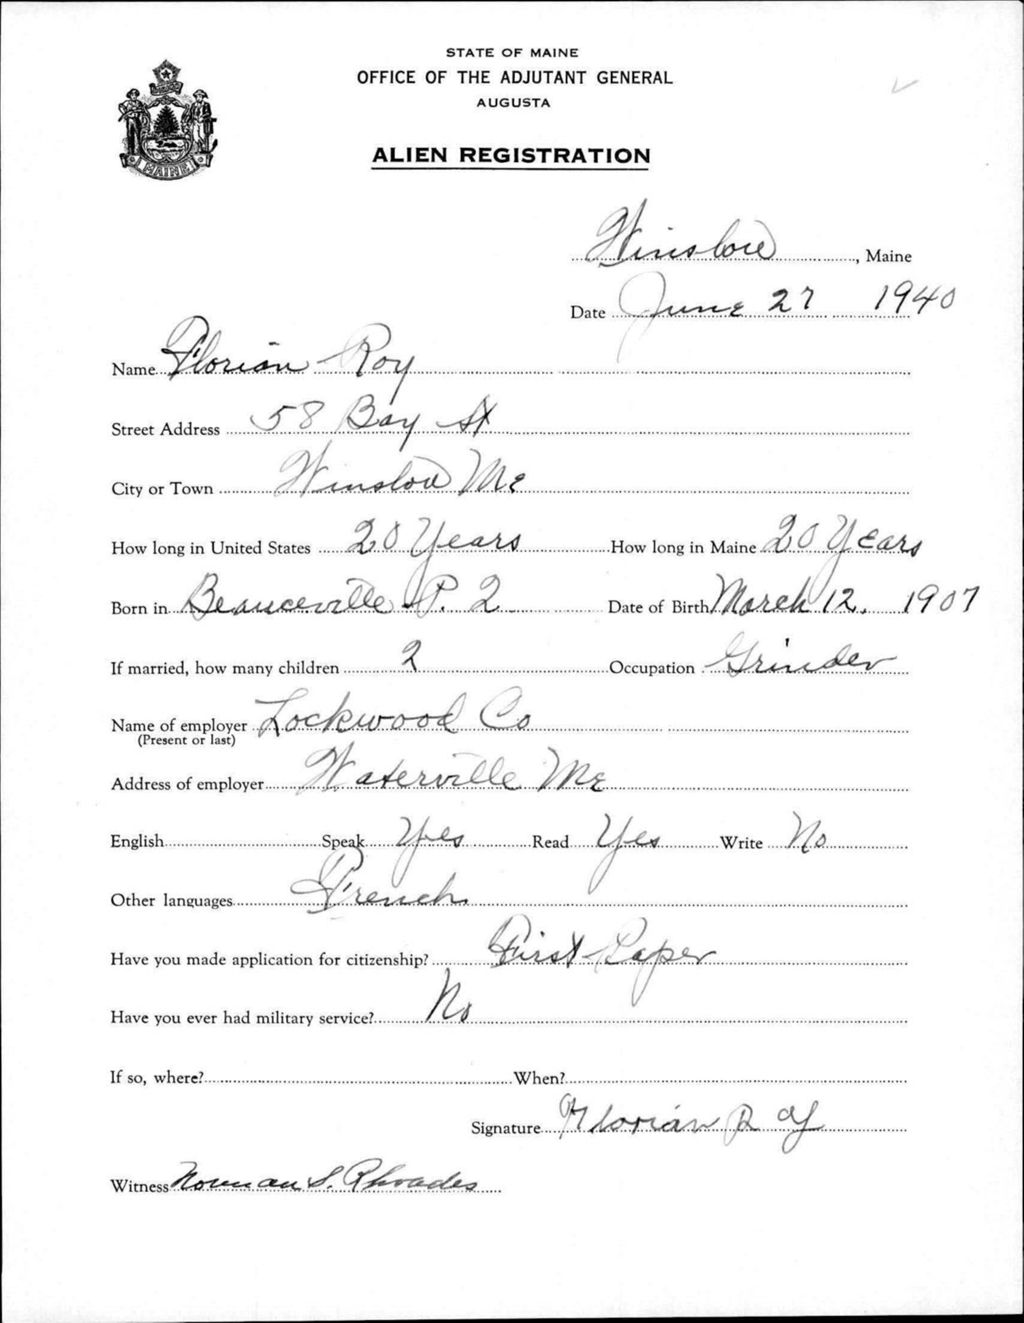 STATE OF MAINE
OFFICE OF THE ADJUTANT GENERAL
AUGUSTA
ALIEN REGISTRATION
MAINE
Winslow, Maine
Date June 27 1940
Name Florian Roy
Street Address 58 Bay St
City or Town Winslow Me
How long in United States 20 Years How long in Maine 20 Years
Born in Beauceville P. Q Date of Birth March 12, 1907
If married, how many children 2 Occupation Grinder
Name of employer Lockwood Co
(Present or last)
Address of employer Waterville Me
English Speak Yes Read Yes Write No
Other languages French
Have you made application for citizenship? First Paper
Have you ever had military service? No
If so, where? When?
Signature Florian Roy
Witness Norman S. Rhoades